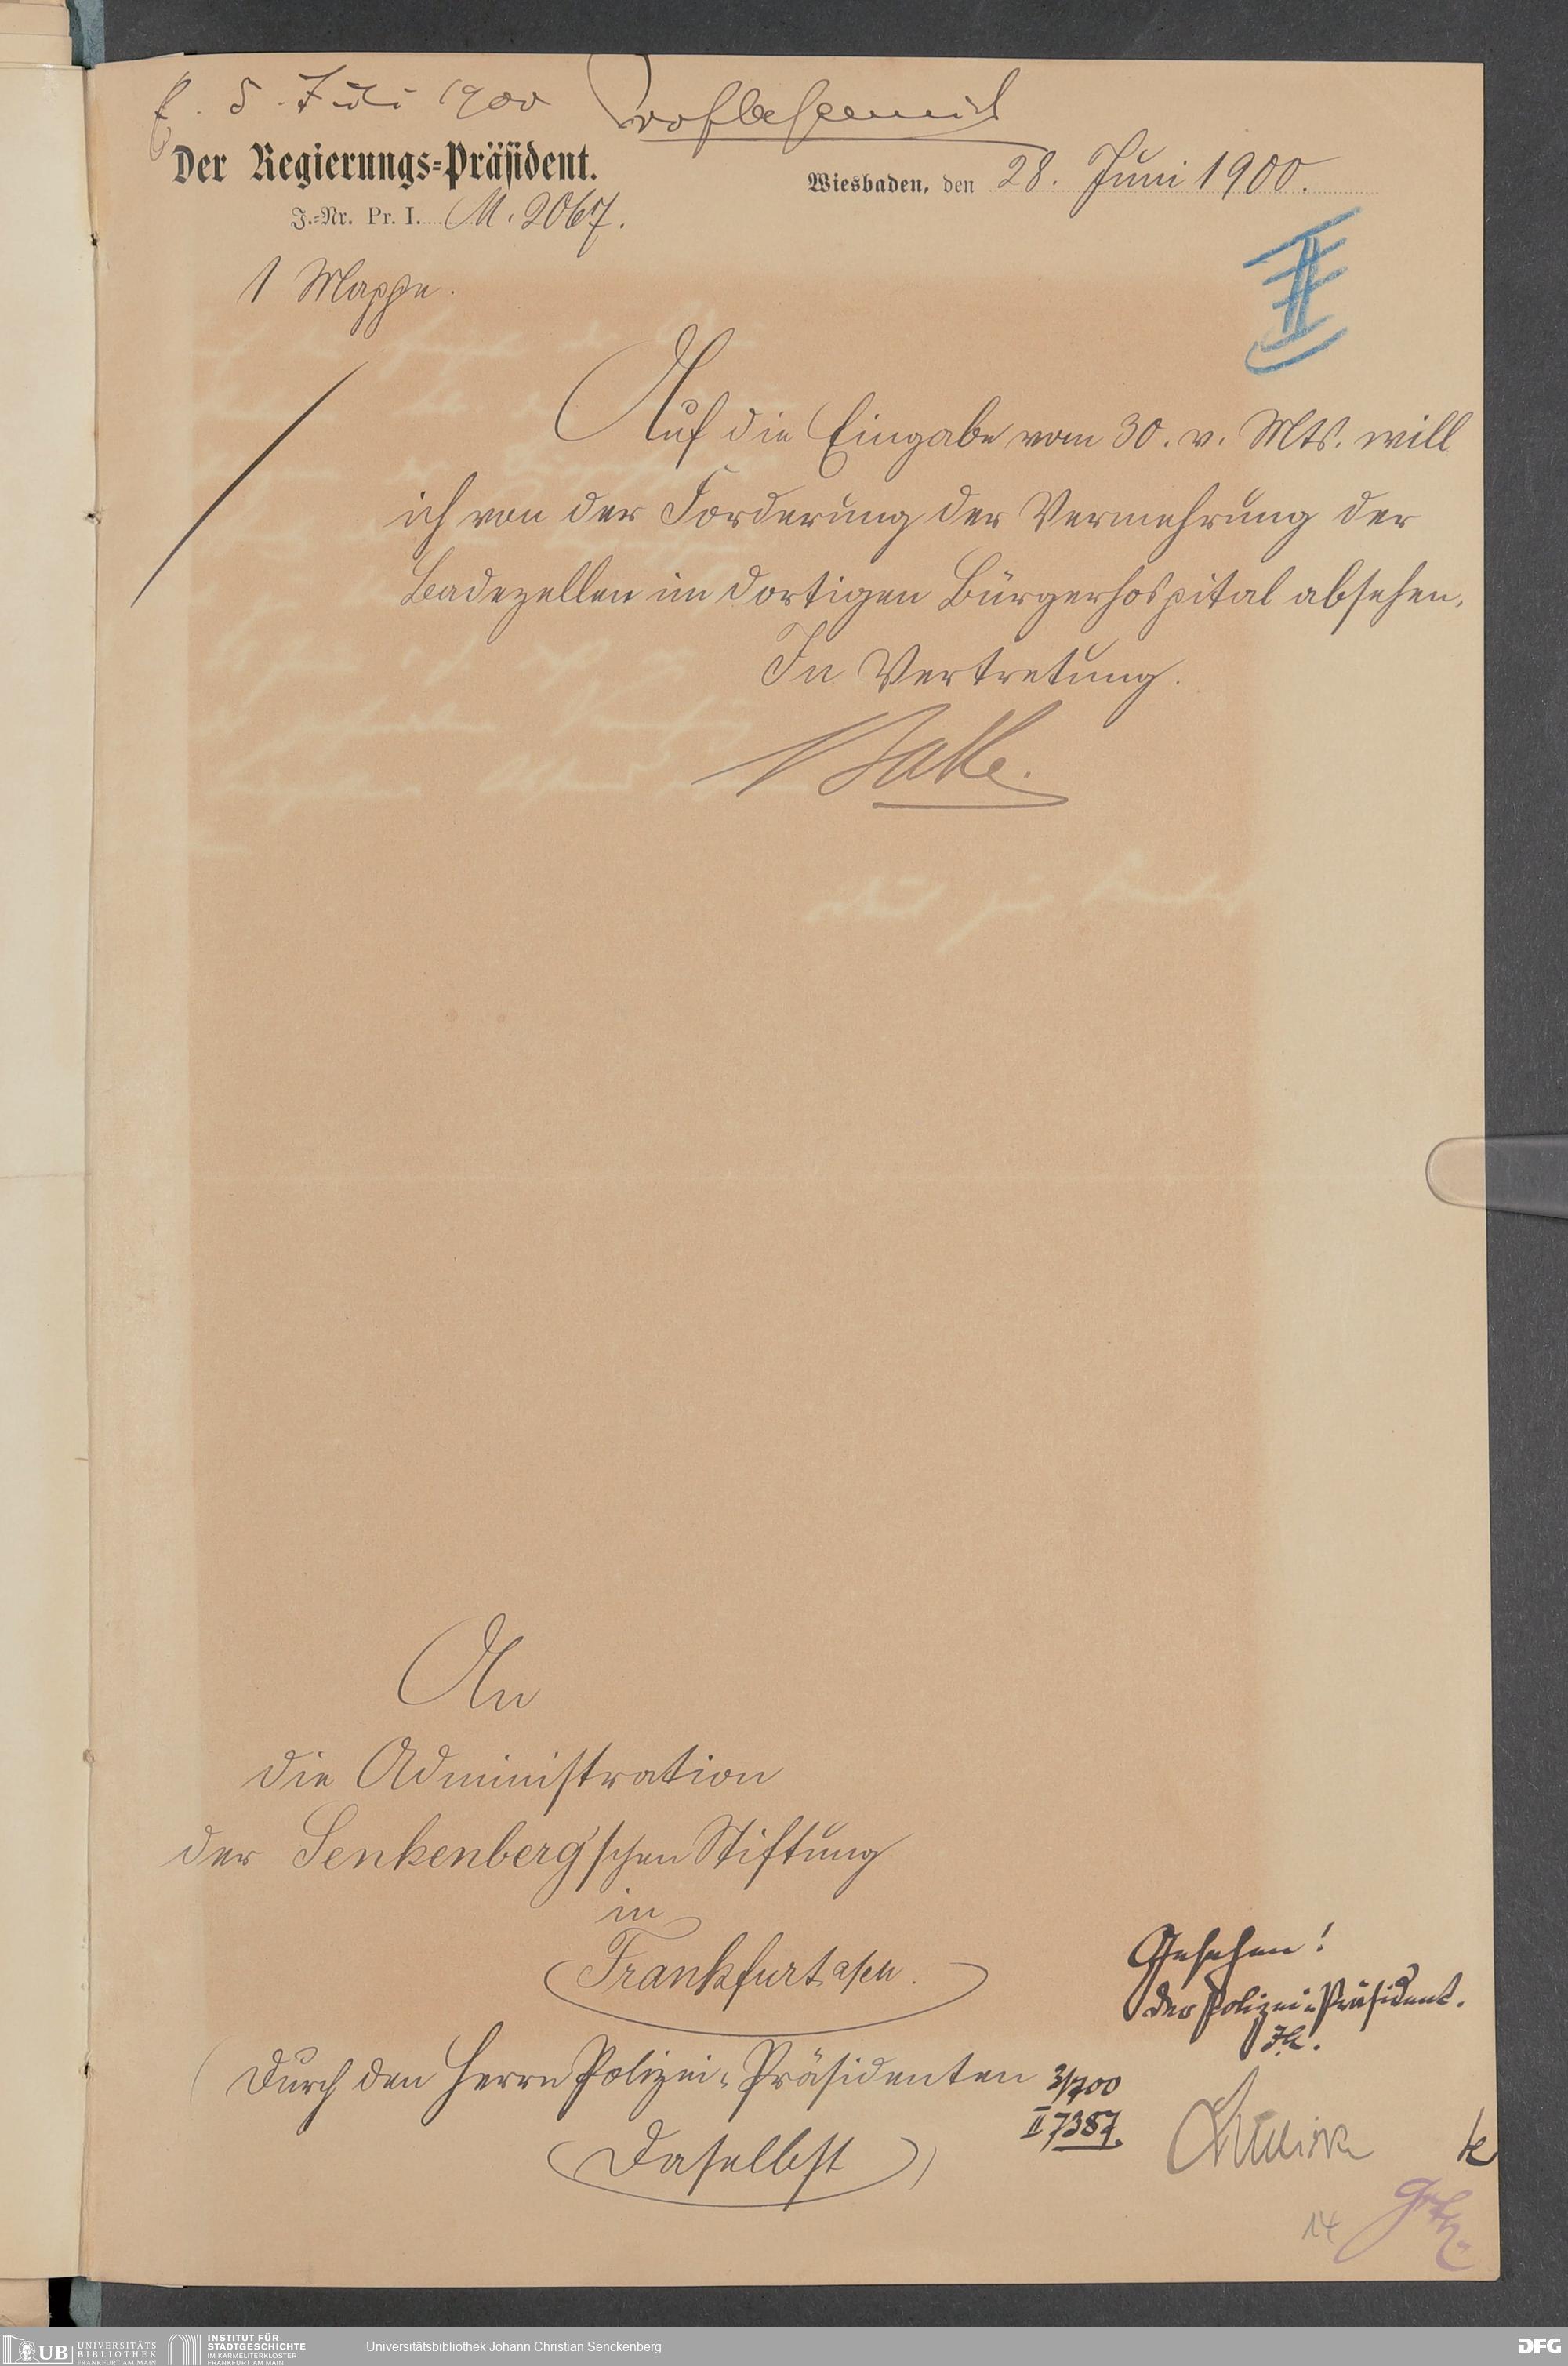 5. Juli 1900
Der Regierungs-Präsident.
Wiesbaden, den 28. Juni 1900.
J.-Nr. Pr. I. M. 2067.
1 Mappe.
II
Auf die Eingabe vom 30. v. Mts. will
ich von der Forderung der Vermehrung der
Badezellen im dortigen Bürgerhospital absehen.
In Vertretung.
Bake.
An
die Administration
der Senkenberg'schen Stiftung
in
Frankfurt a/M.
(Durch den Herrn Polizei-Präsidenten
Daselbst)
Gesehen!
Der Polizei-Präsident.
3/7 00
II 7387.
14
UB UNIVERSITÄTS
BIBLIOTHEK
FRANKFURT AM MAIN
INSTITUT FÜR
STADTGESCHICHTE
IM KARMELITERKLOSTER
FRANKFURT AM MAIN
Universitätsbibliothek Johann Christian Senckenberg
DFG